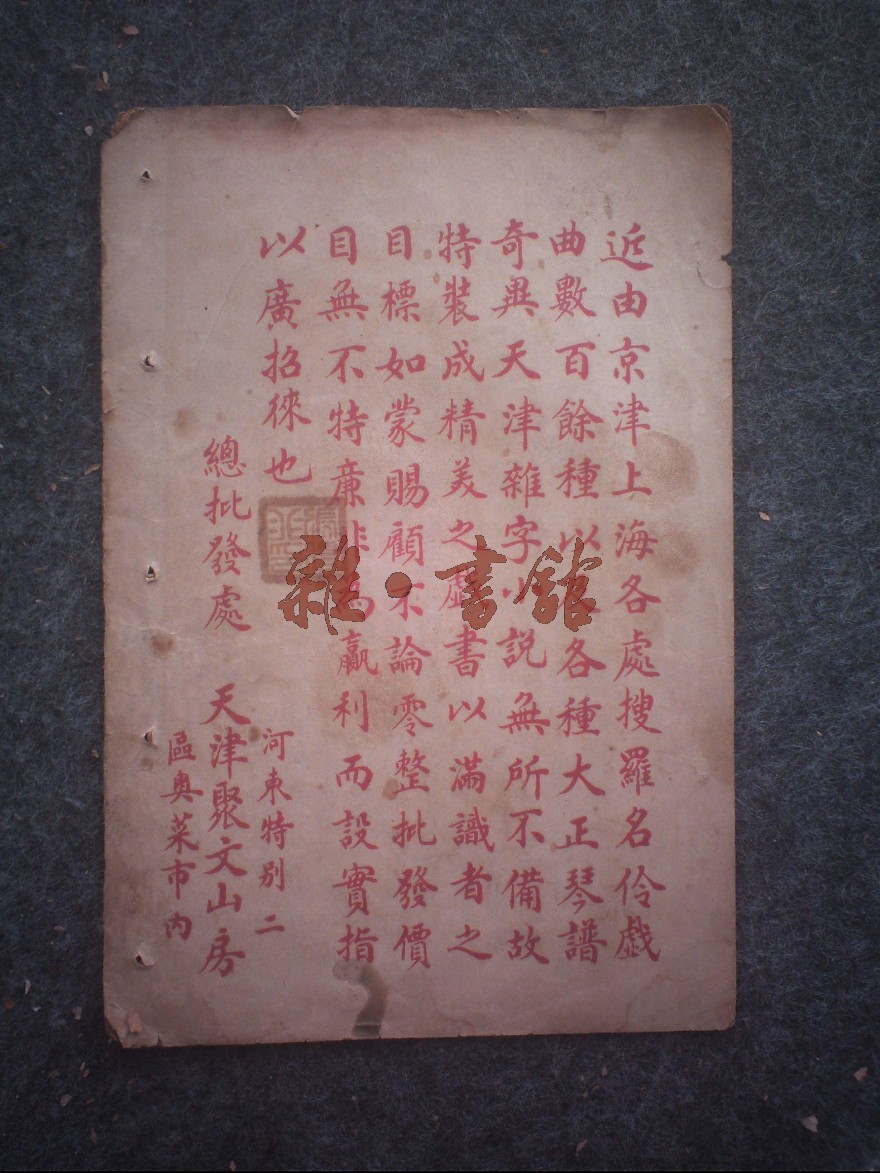 近由京津上海各處搜羅名伶戯
曲數百餘種以各種大正琴譜
奇異天津雜字小說無所不備故
特裝成精美之戯書以滿識者之
目標如蒙賜顧不論零整批發價
目無不特廉非為贏利而設實指
以廣招徠也
總批發處 天津聚文山房
河東特別二
區奧菜市內
雜·書館